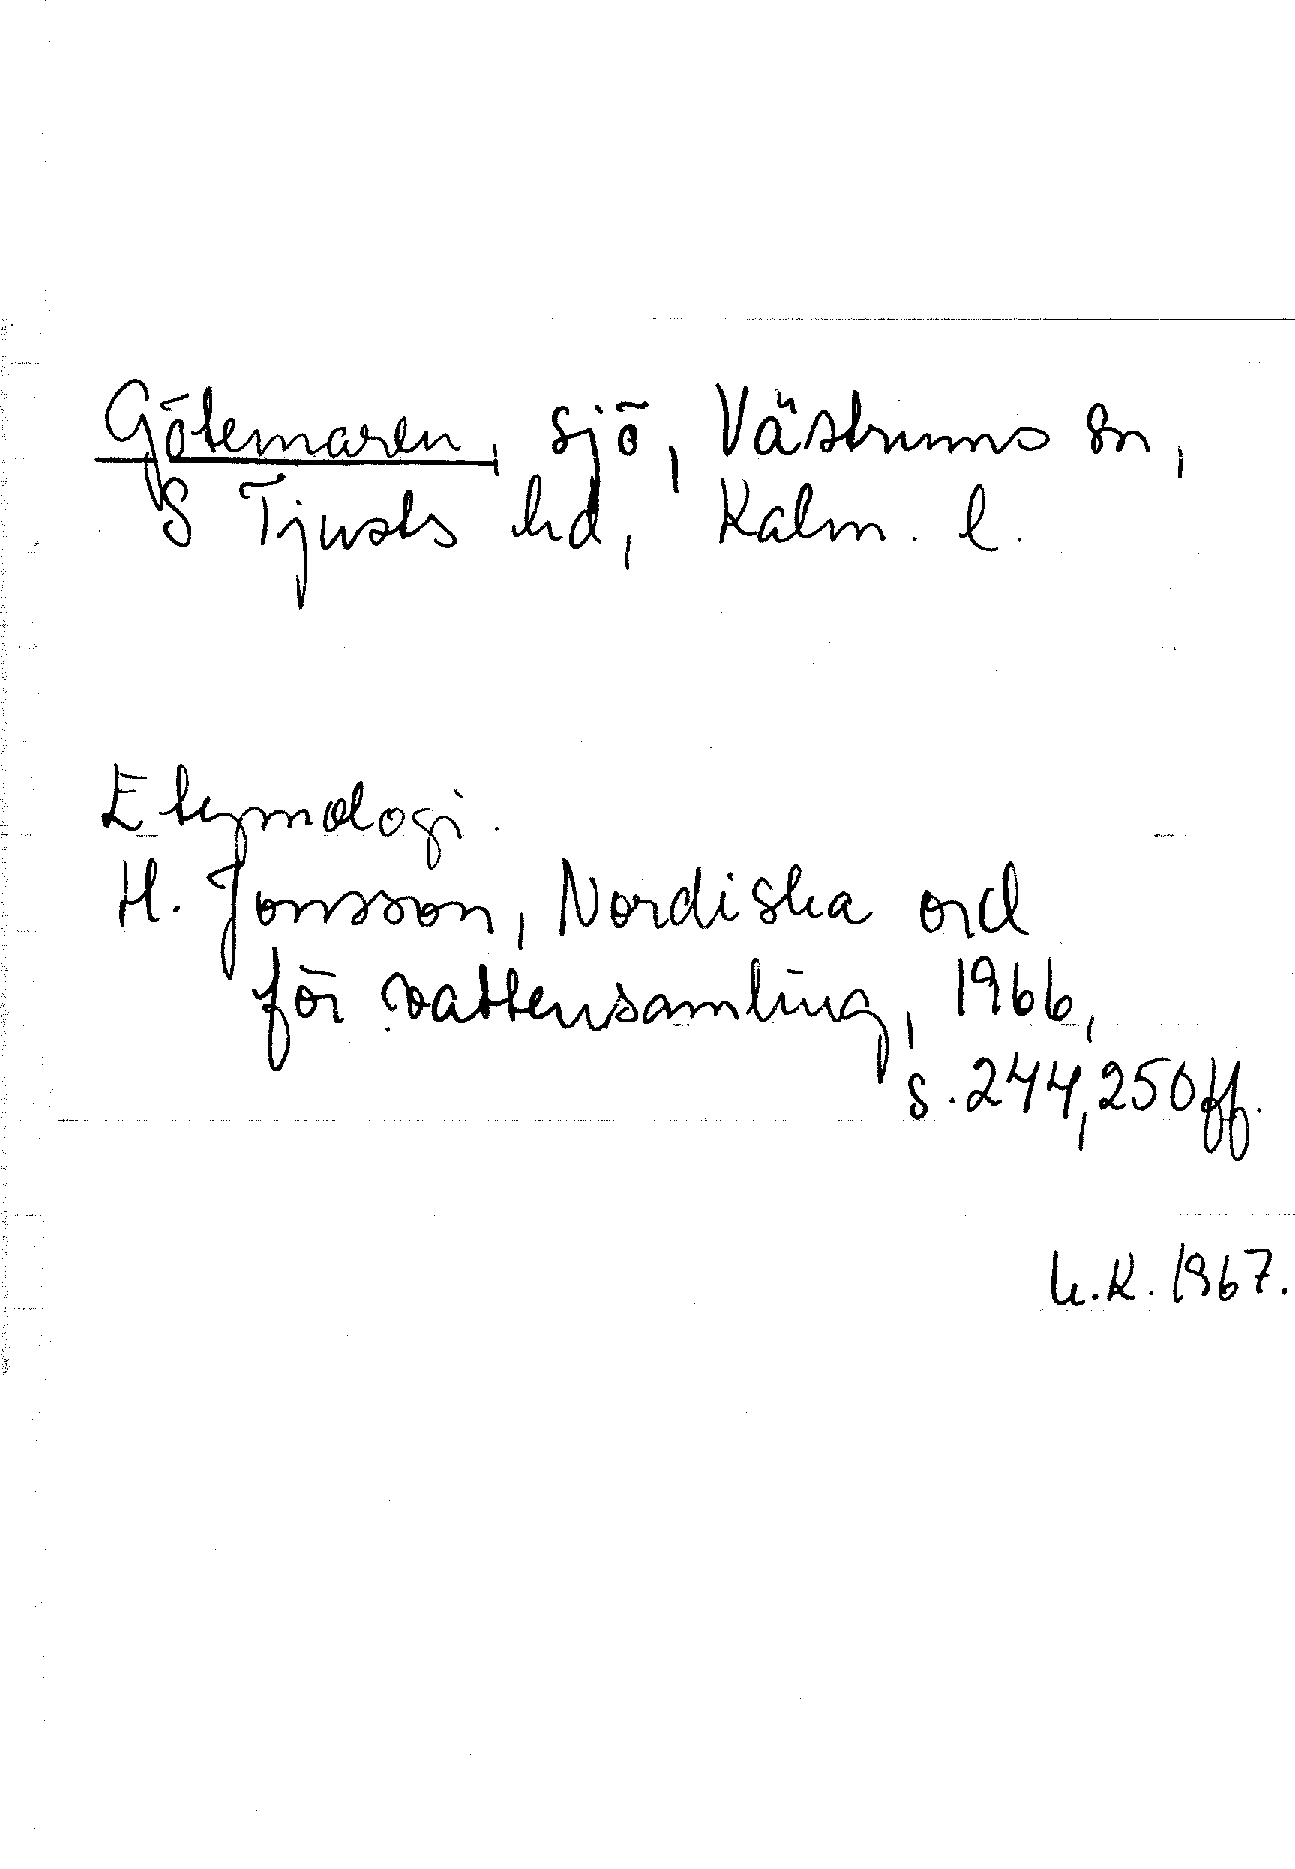 Götemaren, sjö, Västrums sn,
S Tjusts hd, Kalm. l.
Etymologi.
H. Jonsson, Nordiska ord
för vattensamling, 1966,
s. 244, 250 ff.
U.K. 1967.